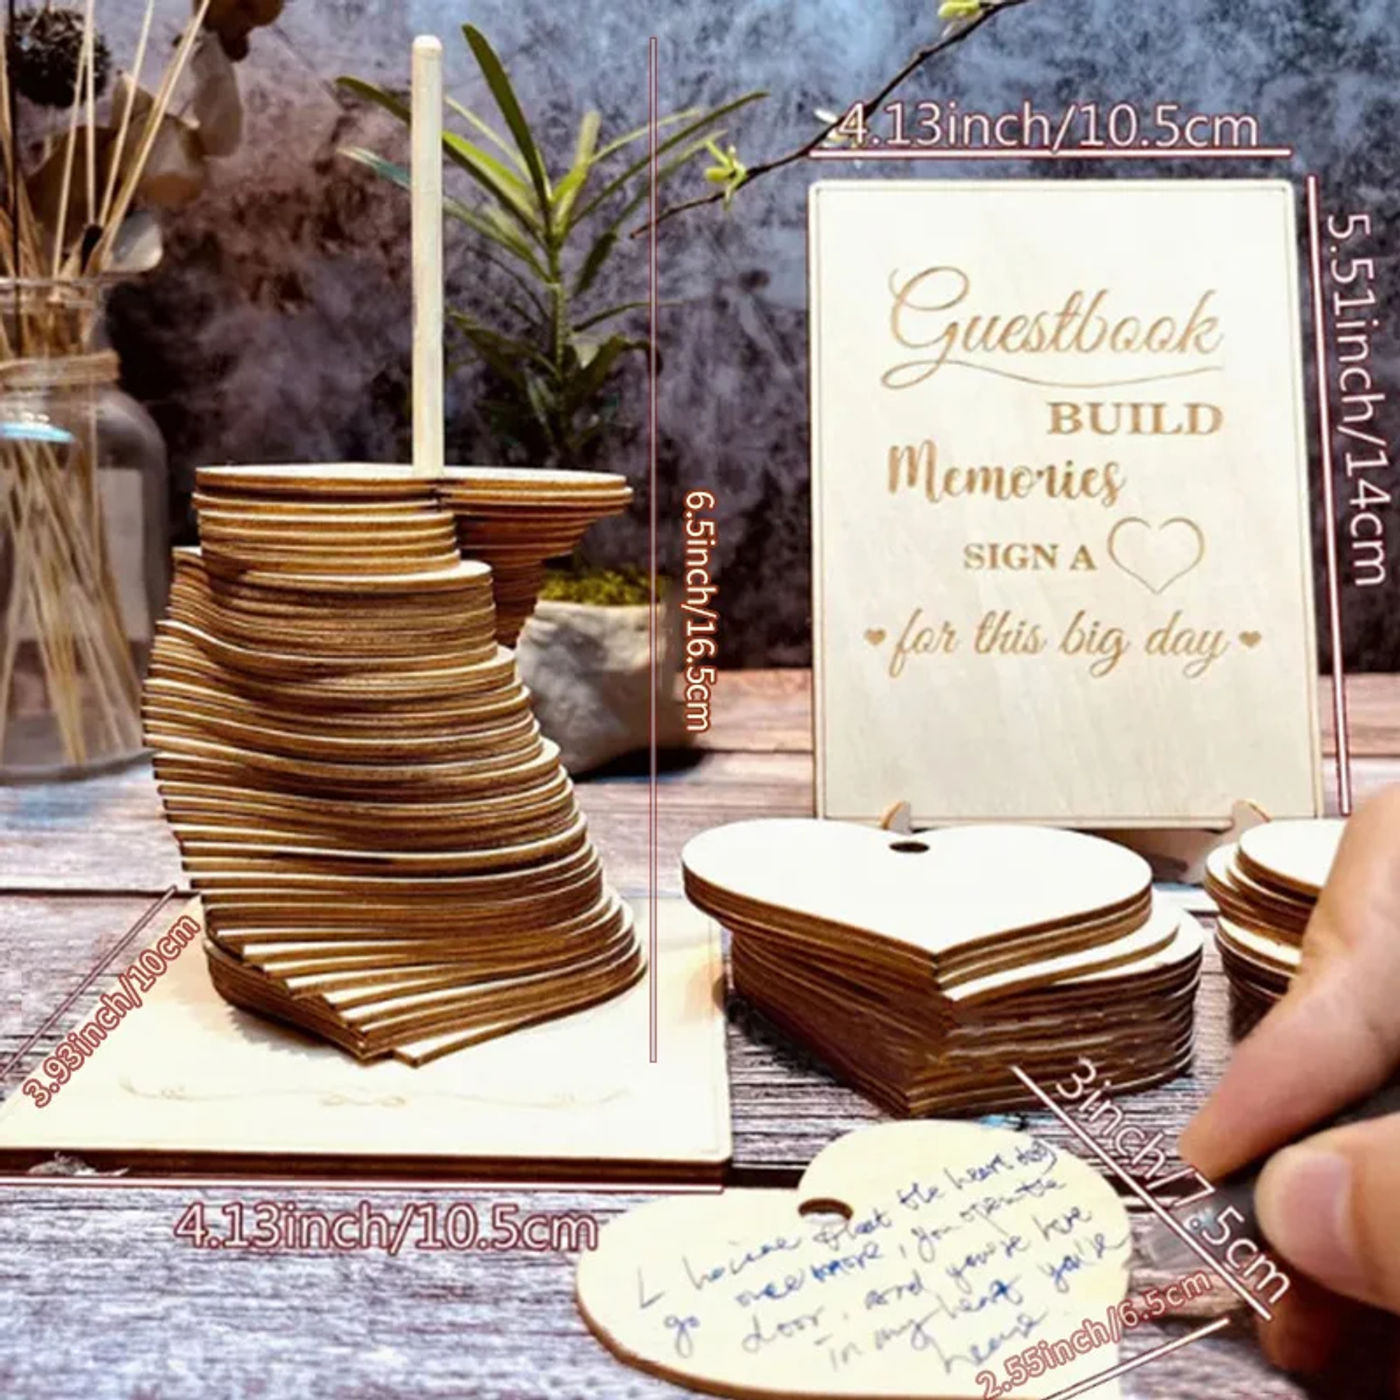 4.13inch/10.5cm
5.51inch/14cm
Guestbook
BUILD
Memories
SIGN A
for this big day
6.5inch/16.5cm
3.93inch/10cm
4.13inch/10.5cm
3inch/7.5cm
2.55inch/6.5cm
the heart
go once more, you open the
door, and you're here
in my heart